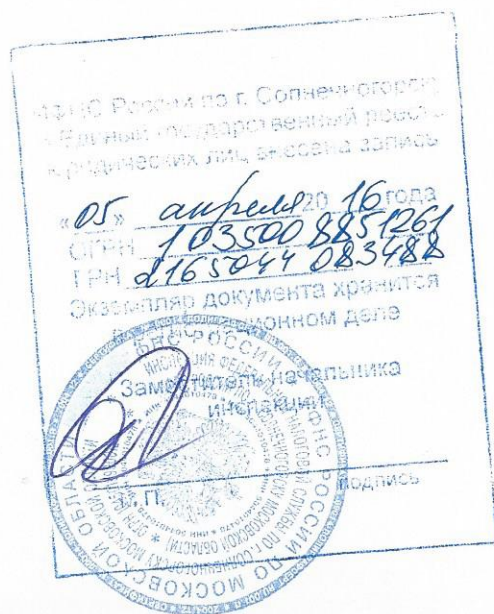 ИФНС России по г. Солнечногорску
в Единый государственный реестр
юридических лиц внесена запись
«05» апреля 20 16 года
ОГРН 1035008851261
ГРН 2165044083488
Экземпляр документа хранится
в регистрационном деле
Заместитель начальника
инспекции
М. П. подпись
ФНС РОССИИ ПО МОСКОВСКОЙ ОБЛАСТИ